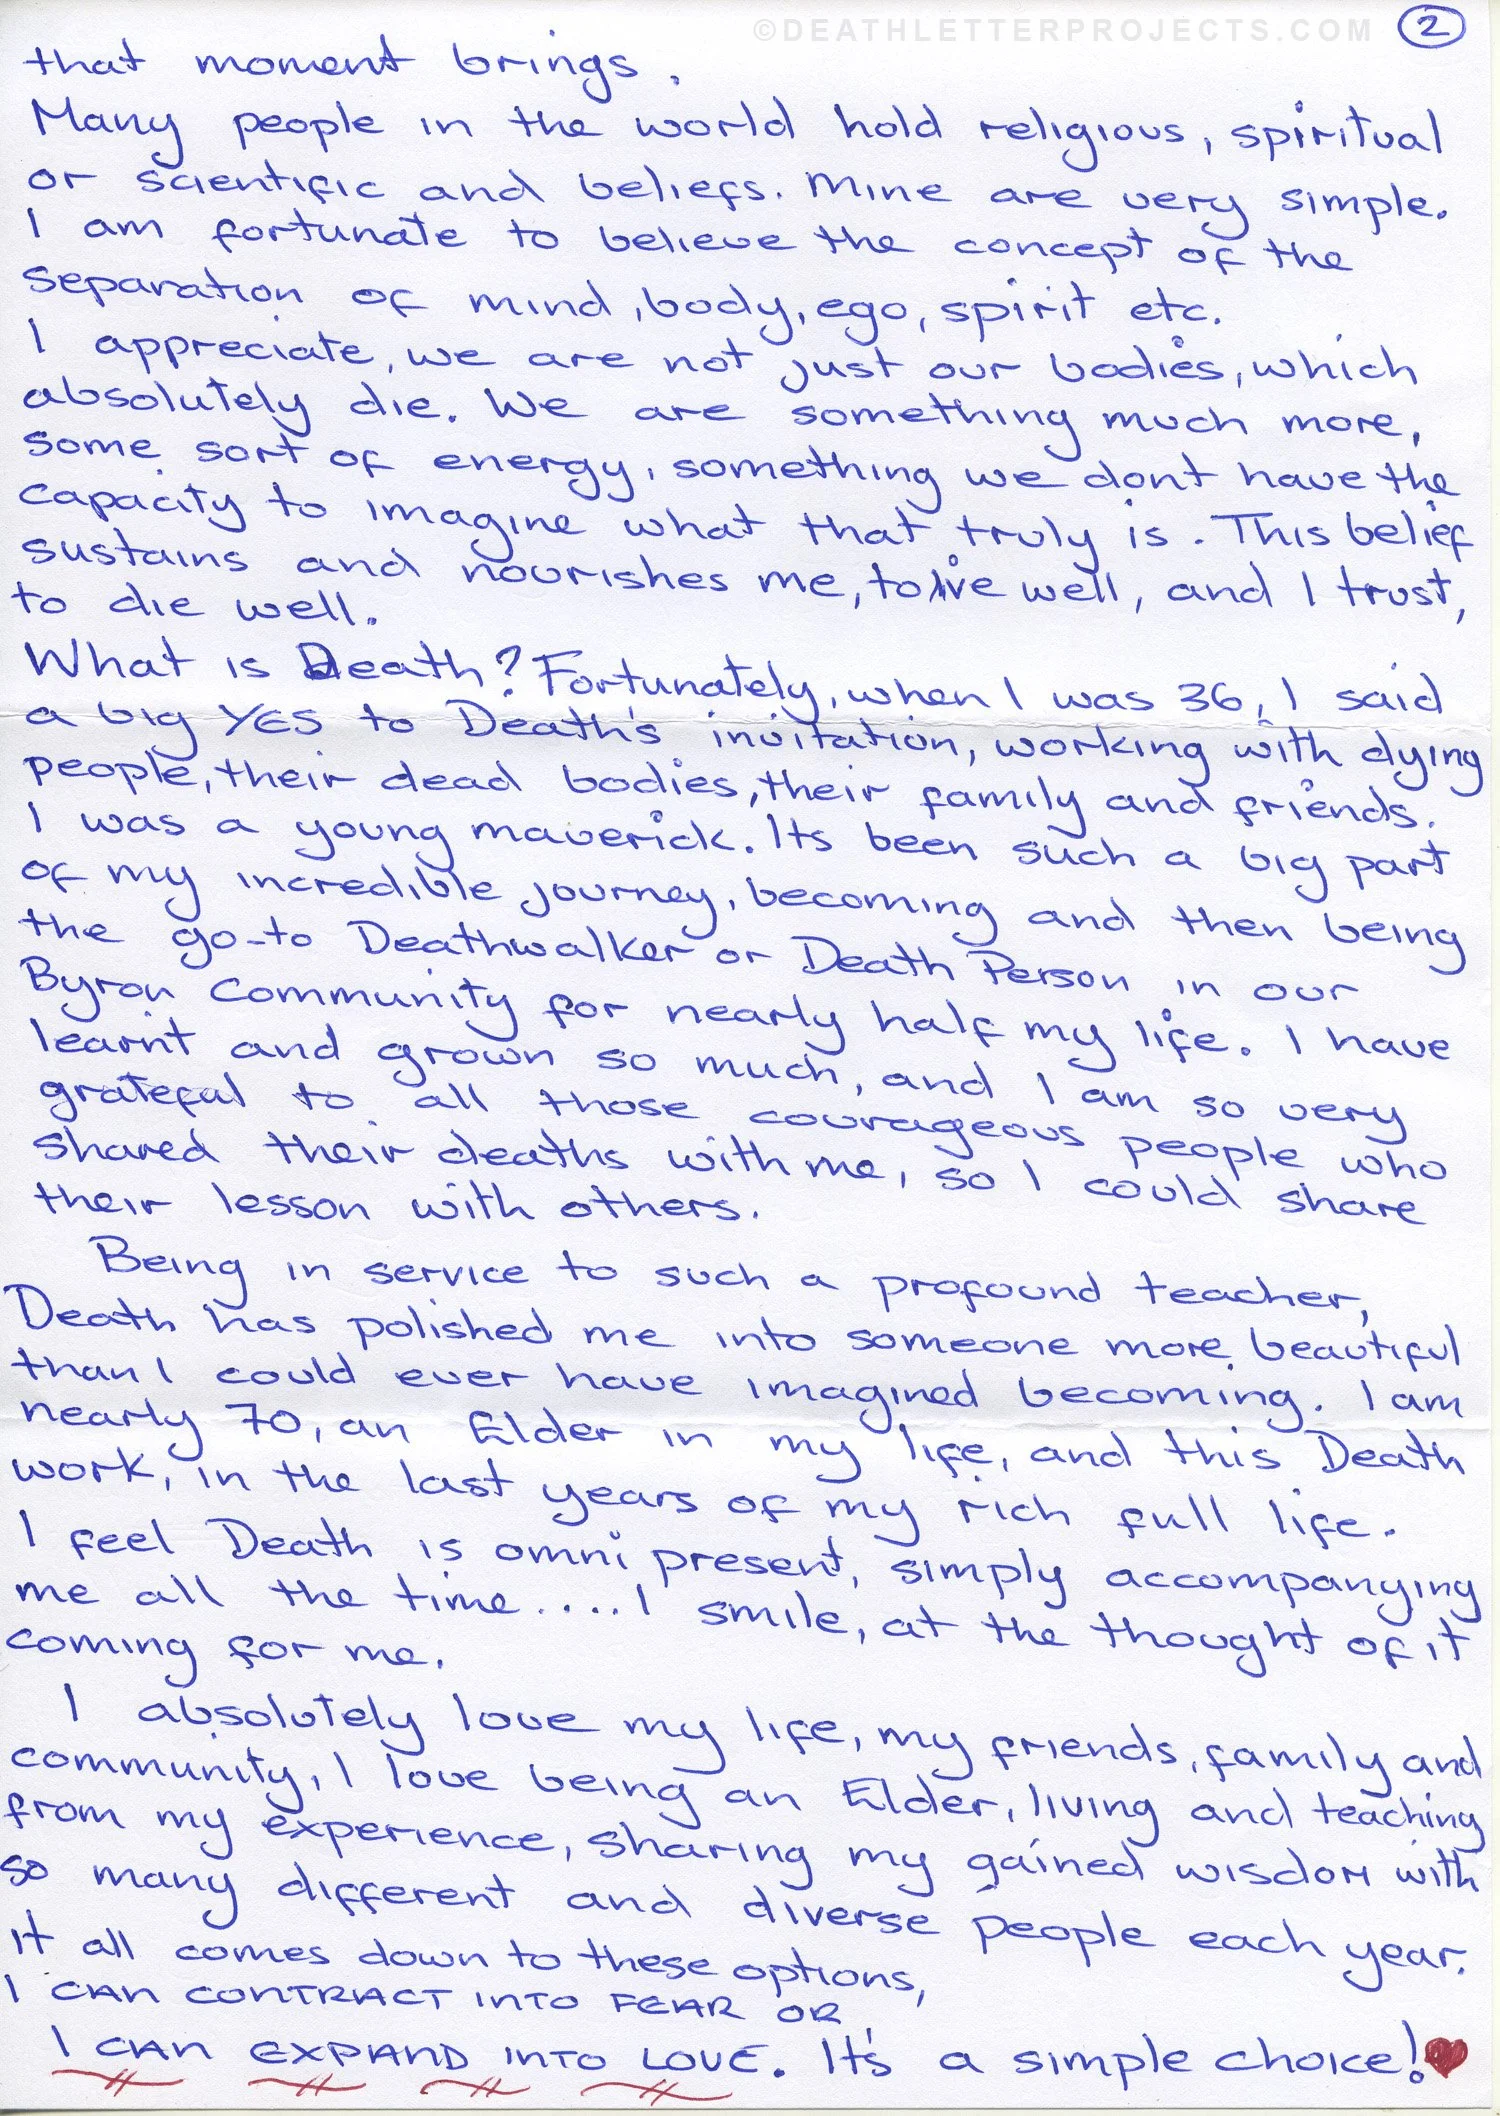 ©DEATHLETTERPROJECTS.COM
2
that moment brings.
Many people in the world hold religious, spiritual
or scientific and beliefs. Mine are very simple.
I am fortunate to believe the concept of the
separation of mind, body, ego, spirit etc.
I appreciate, we are not just our bodies, which
absolutely die. We are something much more,
some sort of energy, something we dont have the
capacity to imagine what that truly is. This belief
sustains and nourishes me, to live well, and I trust,
to die well.
What is Death? Fortunately, when I was 36, I said
a big YES to Death's invitation, working with dying
people, their dead bodies, their family and friends.
I was a young maverick. Its been such a big part
of my incredible journey, becoming and then being
the go-to Deathwalker or Death Person in our
Byron Community for nearly half my life. I have
learnt and grown so much, and I am so very
grateful to all those courageous people who
shared their deaths with me, so I could share
their lesson with others.
Being in service to such a profound teacher,
Death has polished me into someone more beautiful
than I could ever have imagined becoming. I am
nearly 70, an Elder in my life, and this Death
work, in the last years of my rich full life.
I feel Death is omni present, simply accompanying
me all the time....I smile, at the thought of it
coming for me.
I absolutely love my life, my friends, family and
community, I love being an Elder, living and teaching
from my experience, sharing my gained wisdom with
so many different and diverse people each year.
It all comes down to these options,
I CAN CONTRACT INTO FEAR OR
I CAN EXPAND INTO LOVE. It's a simple choice!